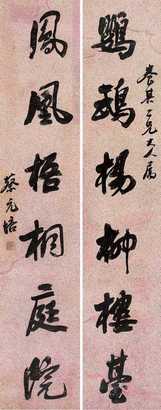 兄大人屬
鸚鵡楊柳樓臺
鳳凰梧桐庭院
蔡元培